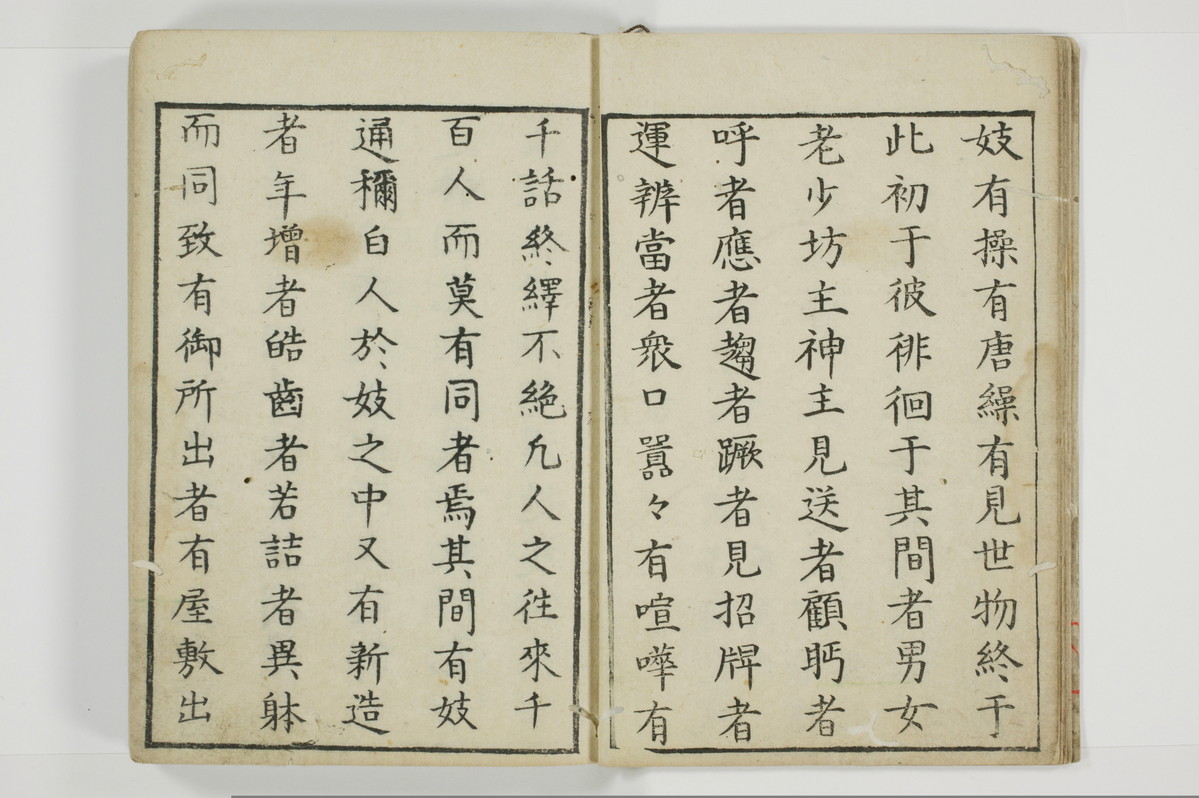 妓有操有唐繰有見世物終于
此初于彼徘徊于其間者男女
老少坊主神主見送者顧眄者
呼者應者趨者蹶者見招牌者
運辨當者衆口囂々有喧嘩有
千話終繹不絶凢人之徃來千
百人而莫有同者焉其間有妓
通稱白人於妓之中又有新造
者年增者皓齒者若詰者異躰
而同致有御所出者有屋敷出